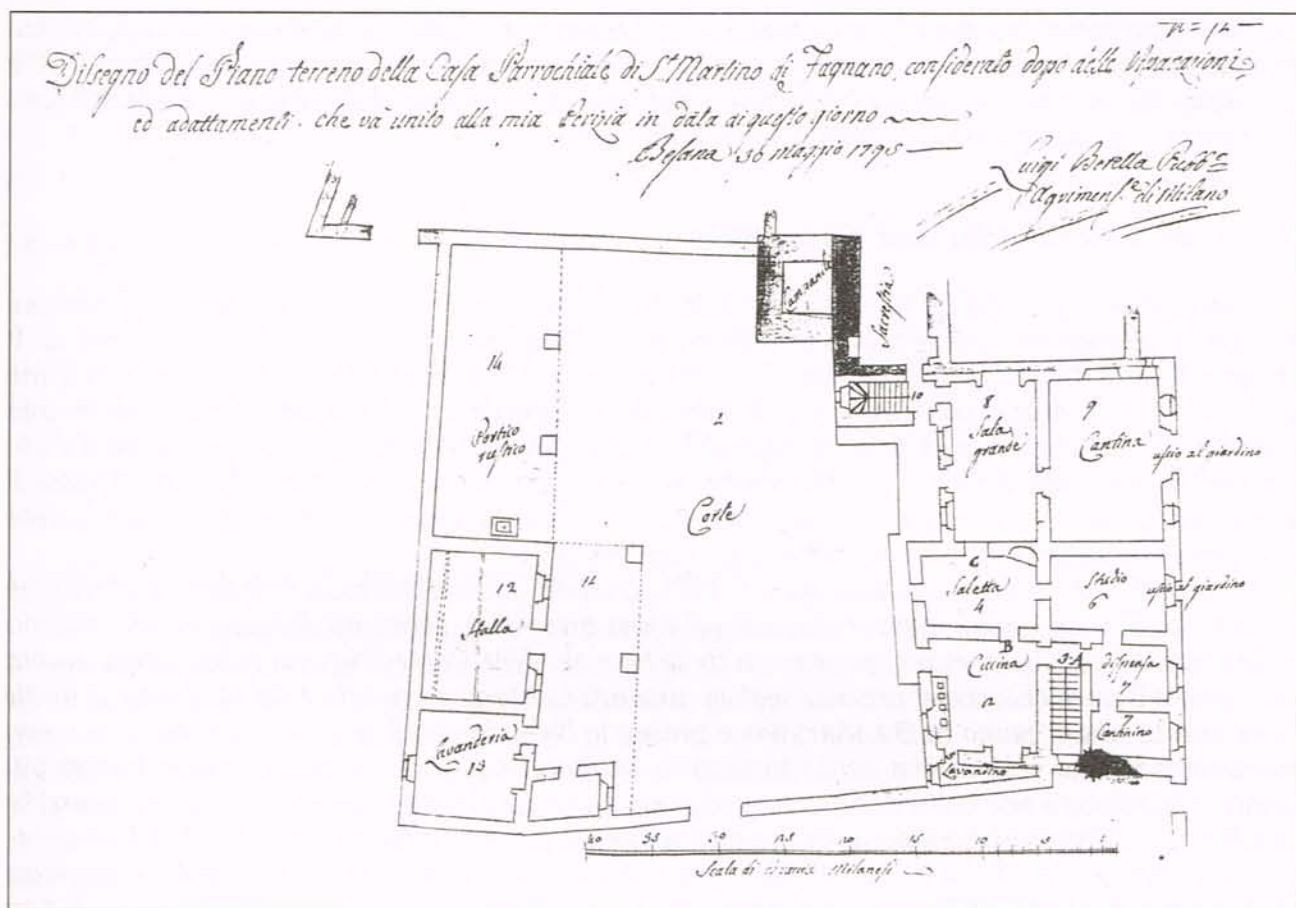 n = 12
Dissegno del Piano terreno della Casa Parrochiale di S. Martino di Fagnano, considerato dopo delle riparazioni
ed adattamenti. che và unito alla mia Perizia in data di questo giorno
Besana 30 maggio 1795
Luigi Beretta
Agrimens.e di Milano
14
Portico
rustico
Sacrestia
1
Corte
10
8
Sala
grande
9
Cantina
uscio al giardino
12
Stalla
11
C
Saletta
4
Studio
6
uscio al giardino
B
Cucina
2
3 A
dispensa
7
Cantinino
Lavandino
Lavanderia
13
40 35 30 25 20 15 10 5
Scala di Milanesi